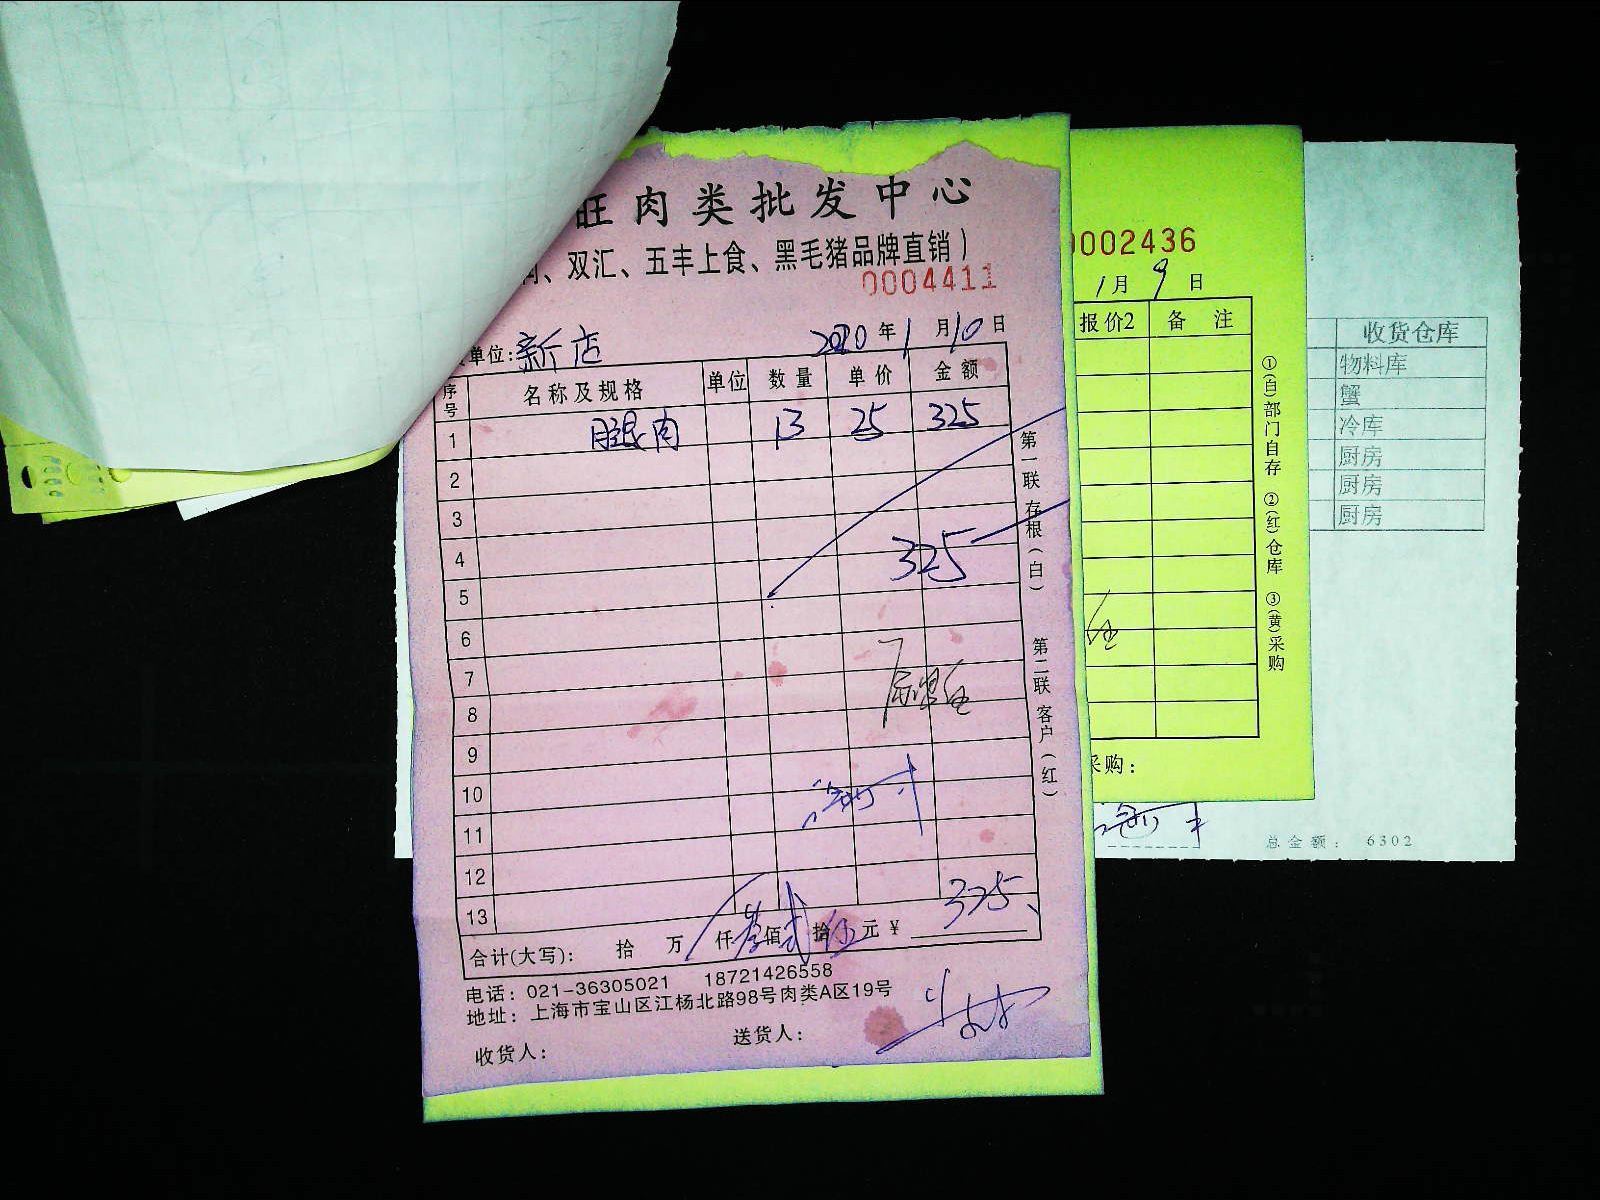 旺肉类批发中心
、双汇、五丰上食、黑毛猪品牌直销）
0004411
单位：新店 2020年1月10日
序号 名称及规格 单位 数量 单价 金额
1 腿肉 13 25 325
2
3
4 325
5
6
7
8
9
10
11
12
13 325
合计(大写)： 拾 万 仟叁佰贰拾伍元 ¥
电话：021-36305021 18721426558
地址：上海市宝山区江杨北路98号肉类A区19号
收货人： 送货人：
第一联 存根（白）
第二联 客户（红）
0002436
1月9日
报价2 备 注
①(白)部门自存 ②(红)仓库 ③(黄)采购
采购：
收货仓库
物料库
蟹
冷库
厨房
厨房
厨房
总金额： 6302